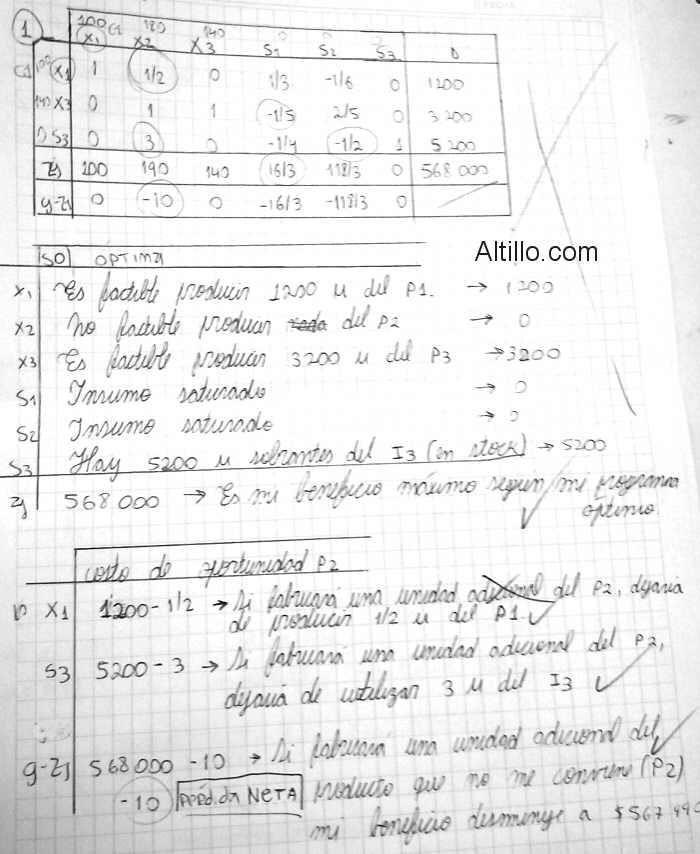 1
100 C1 180 140 0 0 0
X1 X2 X3 S1 S2 S3 D
C1 100 X1 1 1/2 0 1/3 -1/6 0 1200
140 X3 0 1 1 -1/5 2/5 0 3200
0 S3 0 3 0 -1/4 -1/2 1 5200
Zj 100 190 140 16/3 118/3 0 568 000
Cj-Zj 0 -10 0 -16/3 -118/3 0
sol optima
Altillo.com
X1 Es factible producir 1200 u del P1. → 1200
X2 No factible producir del P2 → 0
X3 Es factible producir 3200 u del P3 → 3200
S1 Insumo saturado → 0
S2 Insumo saturado → 0
S3 Hay 5200 u sobrantes del I3 (en stock) → 5200
Zj 568 000 → Es mi beneficio máximo según mi programa
optimo
costo de oportunidad P2
X1 1200 - 1/2 → Si fabricará una unidad adicional del P2, dejaria
de producir 1/2 u del P1.
S3 5200 - 3 → Si fabricará una unidad adicional del P2,
dejaria de utilizar 3 u del I3
Cj-Zj 568 000 - 10 → Si fabricará una unidad adicional del
-10 Pérdida NETA producto que no me conviene (P2)
mi beneficio disminuye a $ 567 990